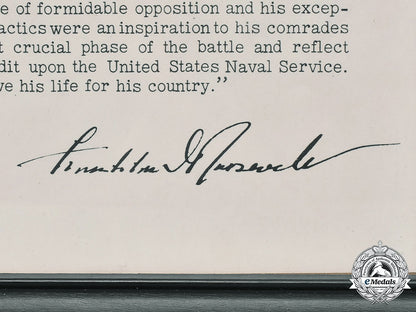 e of formidable opposition and his excep-
actics were an inspiration to his comrades
t crucial phase of the battle and reflect
dit upon the United States Naval Service.
ve his life for his country.”
Franklin D Roosevelt
eMedals